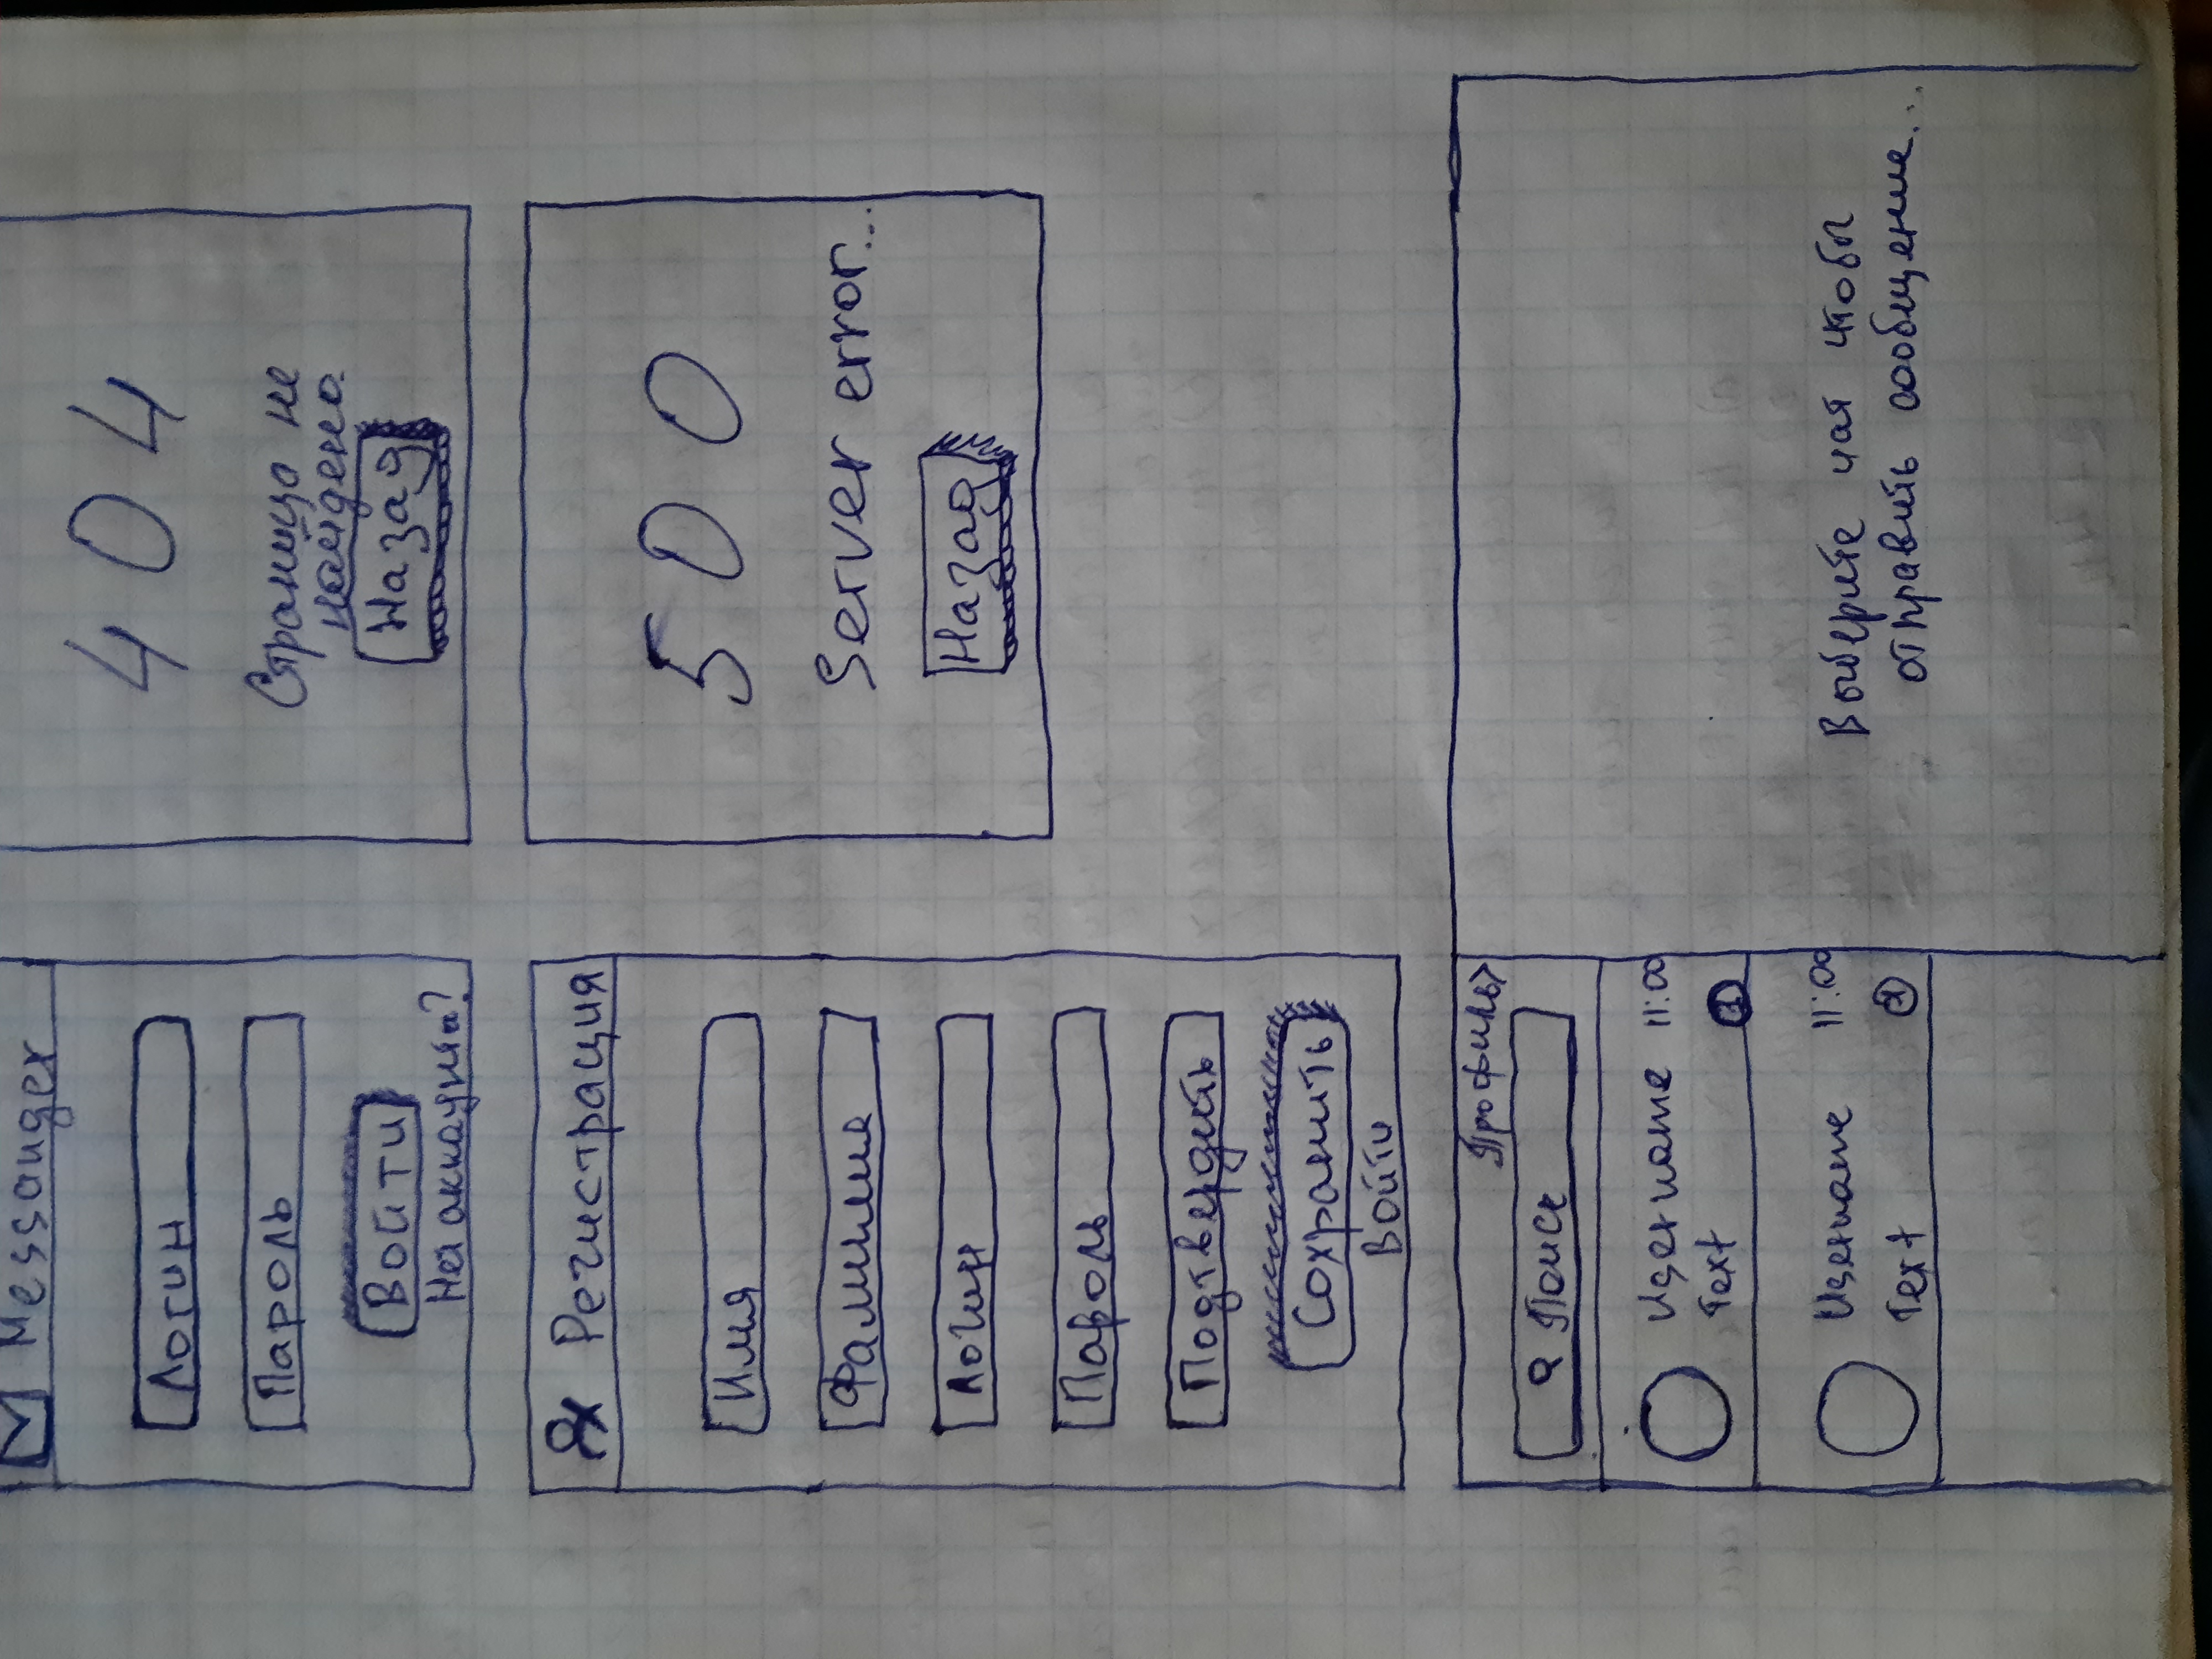 Messanger
Логин
Пароль
Войти
Нет аккаунта?
404
Страница не
найдена
Назад
Регистрация
Имя
Фамилия
Логин
Пароль
Подтвердить
Сохранить
Войти
500
Server error...
Назад
Профиль>
Поиск
Username 11:00
Text 1
Username 11:00
Text 1
Выберите чат чтобы
отправить сообщение...